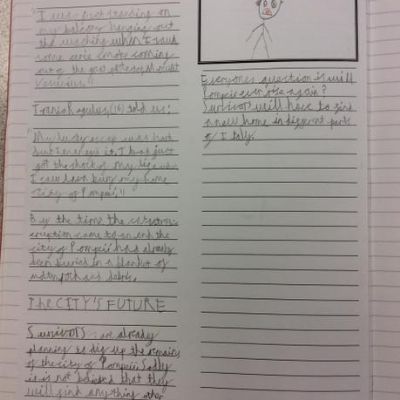 "I was just standing on
my balcony hanging out
the washing when I saw
some eerie smoke coming
out of the great Mount
Vesuvius."
(16) told us:
"My lucky escape was hard
but I made it. I had just
got the shock of my life when
I saw lava bury my home
city of Pompeii"
By the time the
eruption came to an end the
city of Pompeii had already
been buried in a blanket of
molten rock and debris.
The CITY'S FUTURE
Survivors are already
planning to dig up the remains
of the city of Pompeii Sadly
it is not believed that they
will find anything other
Everyones question is will
Pompeii ever rise again?
Survivors will have to find
a new home in different parts
of Italy.